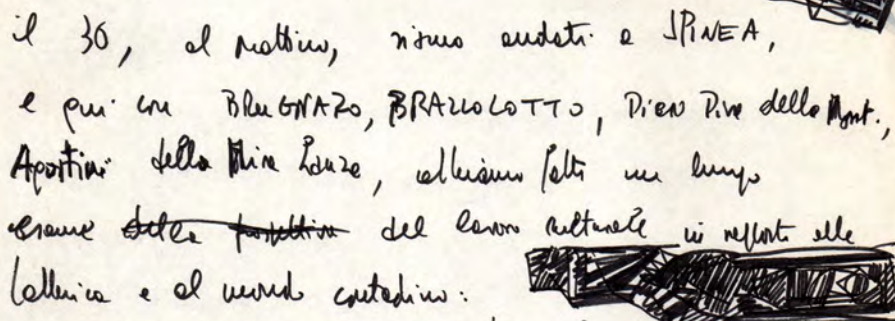 il 30, al mattino, siamo andati a SPINEA,
e qui con BRUGNARO, BRAZZOLOTTO, Dino Diva della Mont.,
Agostini della Mira Lanza, abbiamo fatto un lungo
esame della prospettiva del lavoro culturale in rapporto alla
fabbrica e al mondo contadino: